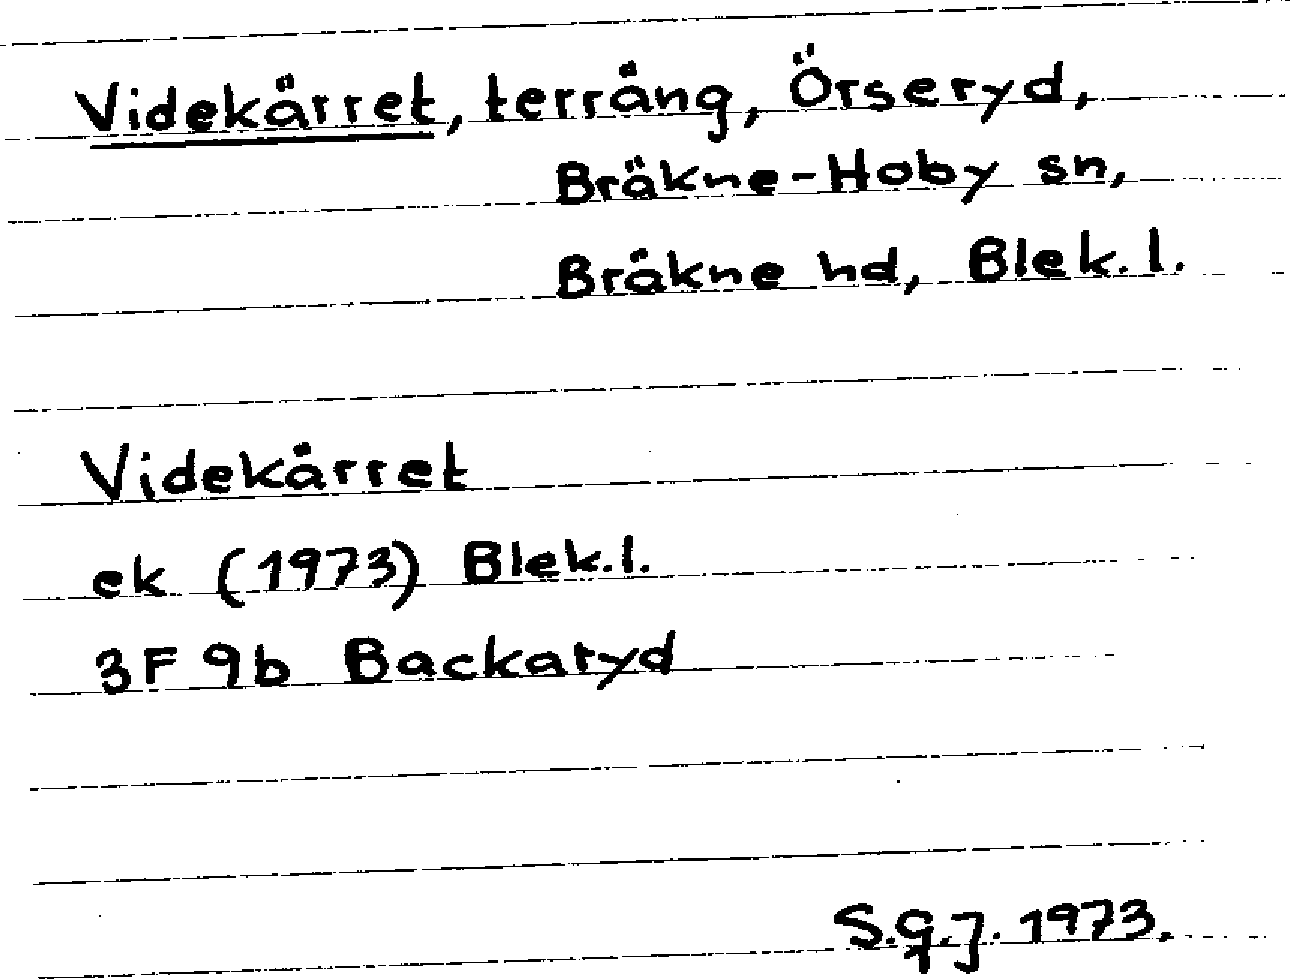 Videkärret, terräng, Örseryd,
Bräkne-Hoby sn,
Bräkne hd, Blek. l.
Videkärret
ek (1973) Blek. l.
3F 9b Backaryd
S.G.J. 1973.